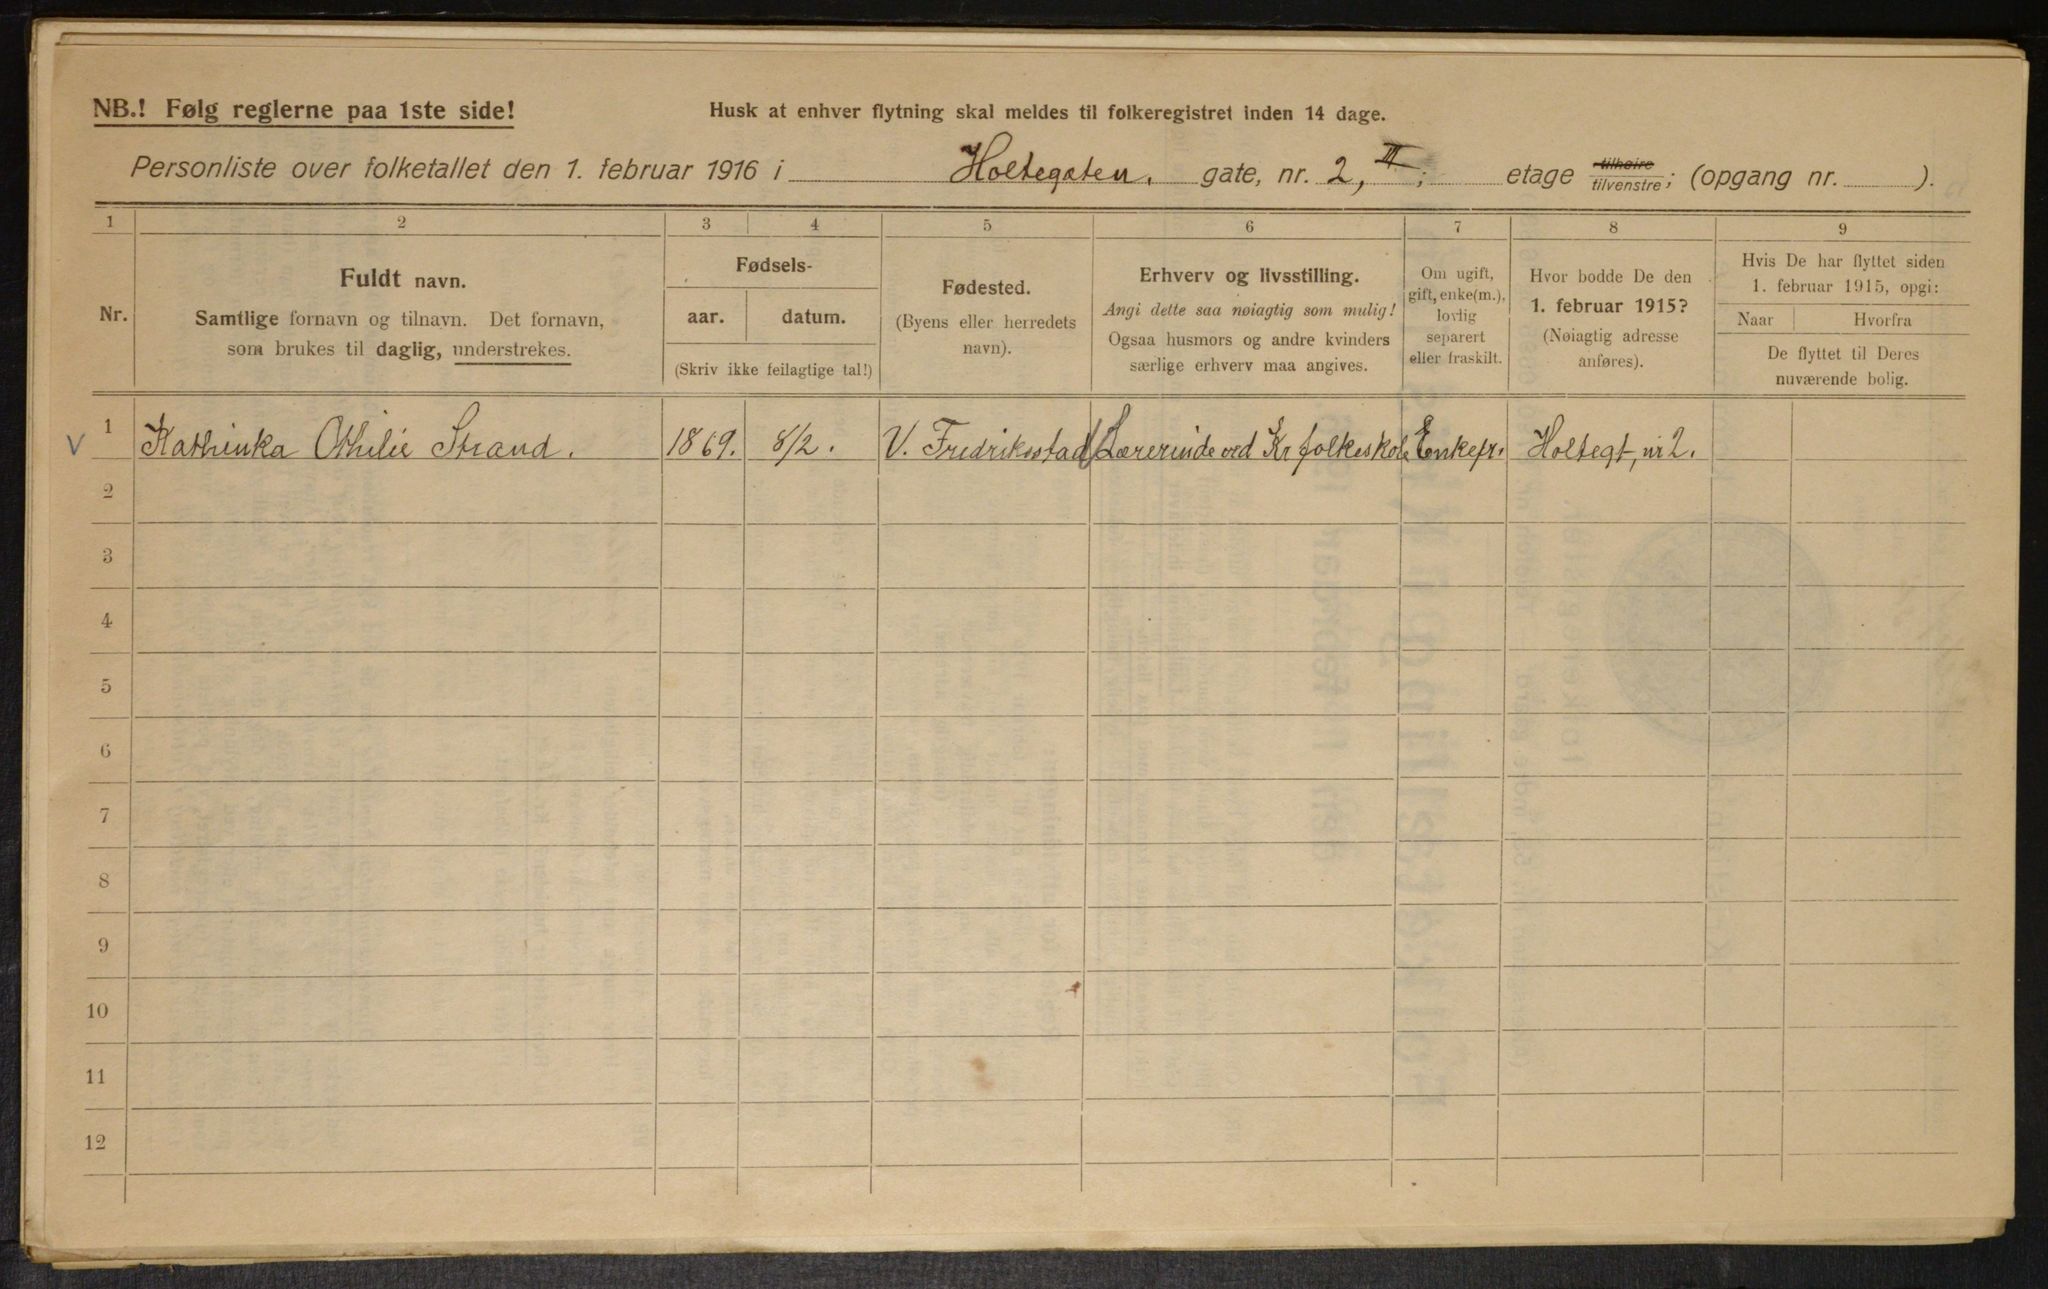 NB.! Følg reglerne paa 1ste side!
Husk at enhver flytning skal meldes til folkeregistret inden 14 dage.
Personliste over folketallet den 1. februar 1916 i Holtegaten. gate, nr. 2, III; etage tilhøire/tilvenstre; (opgang nr. ).
1 2 3 4 5 6 7 8 9
Nr.
Fuldt navn.
Samtlige fornavn og tilnavn. Det fornavn,
som brukes til daglig, understrekes.
Fødsels-
aar. datum.
(Skriv ikke feilagtige tal!)
Fødested.
(Byens eller herredets
navn).
Erhverv og livsstilling.
Angi dette saa nøiagtig som mulig!
Ogsaa husmors og andre kvinders
særlige erhverv maa angives.
Om ugift,
gift, enke(m.),
lovlig
separert
eller fraskilt.
Hvor bodde De den
1. februar 1915?
(Nøiagtig adresse
anføres).
Hvis De har flyttet siden
1. februar 1915, opgi:
Naar Hvorfra
De flyttet til Deres
nuværende bolig.
V 1 Kathinka Othilie Strand. 1869. 8/2. V. Fredriksstad Lærerinde ved Kr folkeskole Enkefr. Holtegt, nr 2.
2
3
4
5
6
7
8
9
10
11
12